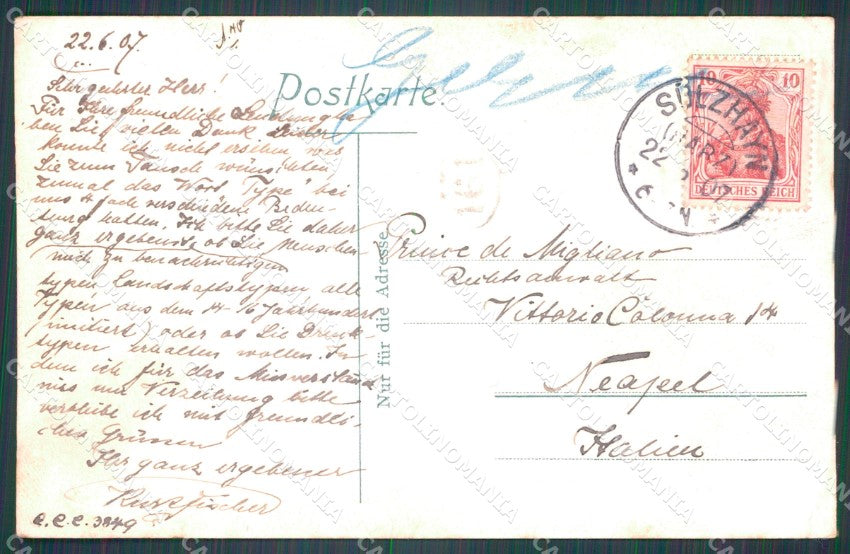 22.6.07.
Sehr geehrter Herr!
Für Ihre freundliche Sendung ha-
ben Sie vielen Dank. Leider
konnte ich nicht ersehen was
Sie zum Tausch wünschten,
zumal das Wort "Type" bei
uns 4 fach verschiedene Bedeu-
tung hatten. Ich bitte Sie daher
ganz ergebenst ob Sie Menschen
mich zu benachrichtigen
typen, Landschaftstypen, alte
Typen aus dem 14-16 Jahrhundert
(imitiert) oder ob Sie Druck-
typen erhalten wollen. In
dem ich für das Missverständ
niss um Verzeihung bitte
verbleibe ich mit freundli-
chen Grüssen
Ihr ganz ergebener
Kurt Fischer
e.e.e. 3849
Postkarte.
Nur für die Adresse
10 10
DEUTSCHES REICH
SÜLZHAYN
(HARZ)
22
6
Prince de Migliano
Rechtsanwalt
Vittorio Colonna 14
Neapel
Italien
CARTOLINOMANIA